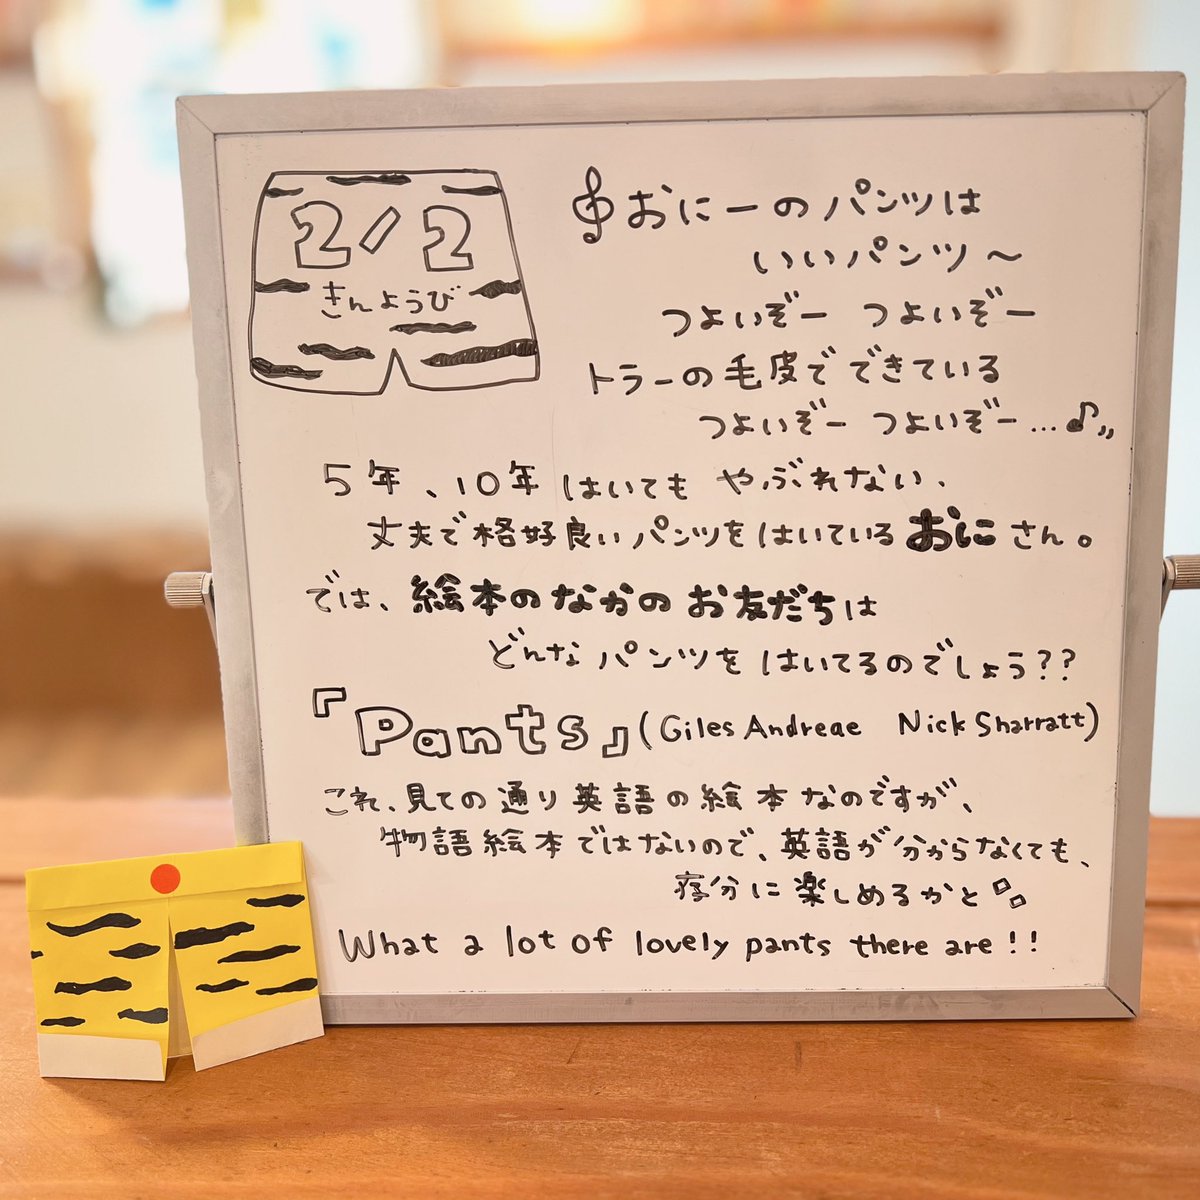 2/2
きんようび
おにーのパンツは
いいパンツ〜
つよいぞー つよいぞー
トラーの毛皮でできている
つよいぞー つよいぞー…♪〃
5年、10年はいてもやぶれない、
丈夫で格好良いパンツをはいているおにさん。
では、絵本のなかのお友だちは
どんなパンツをはいてるのでしょう??
『Pants』(Giles Andreae Nick Sharratt)
これ、見ての通り英語の絵本なのですが、
物語絵本ではないので、英語が分からなくても、
存分に楽しめるかと
What a lot of lovely pants there are!!